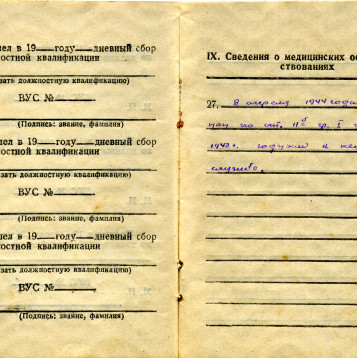 шел в 19 году дневный сбор
ностной квалификации
зать должностную квалификацию)
ВУС №
(Подпись: звание, фамилия)
шел в 19 году дневный сбор
ностной квалификации
зать должностную квалификацию)
ВУС №
(Подпись: звание, фамилия)
шел в 19 году дневный сбор
ностной квалификации
зать должностную квалификацию)
ВУС №
(Подпись: звание, фамилия)
IX. Сведения о медицинских ос
ствованиях
27. 8 апреля 1944 года
по ст. гр. I
1942г. годный к не
службе.